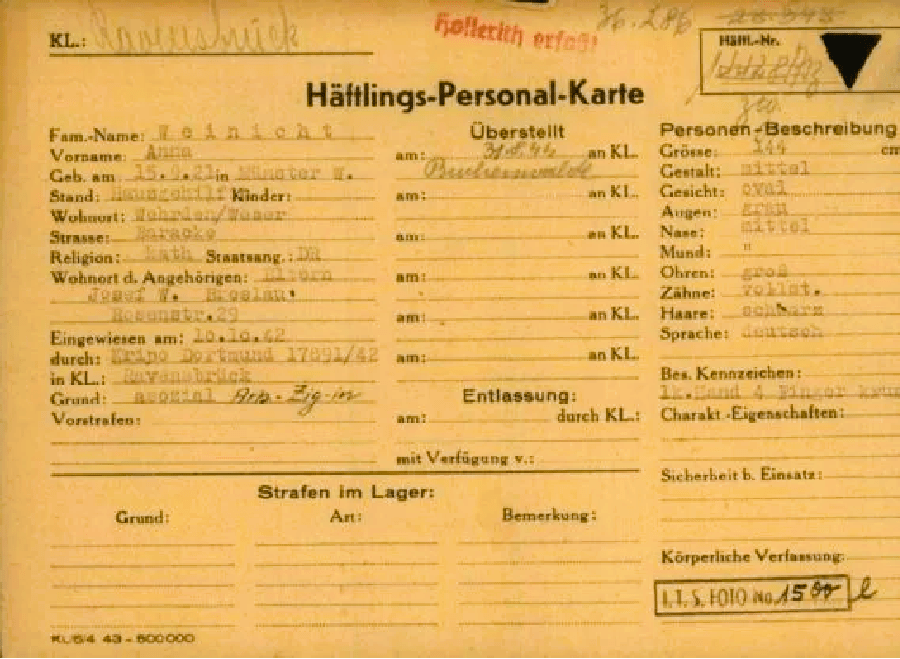 KL.: Ravensbrück
Hollerith erfaßt
36.286
Häftl.-Nr.
Häftlings-Personal-Karte
Fam.-Name: Weinicht
Vorname: Anna
Geb. am 15.9.21 in Münster W.
Stand: Hausgehilf Kinder:
Wohnort: Wehrden/Weser
Strasse: Baracke
Religion: kath Staatsang.: DR
Wohnort d. Angehörigen: Eltern
Josef W. Breslau
Rosenstr.29
Eingewiesen am: 10.10.42
durch: Kripo Dortmund 17891/42
in KL.: Ravensbrück
Grund: asozial Arb.-Zig-in
Vorstrafen:
Überstellt
am: 31.8.44 an KL.
Buchenwald
am: an KL.
am: an KL.
am:
am: an KL.
am: an KL.
Entlassung:
am: durch KL.:
mit Verfügung v.:
Personen-Beschreibung
Grösse: 144 cm
Gestalt: mittel
Gesicht: oval
Augen: grau
Nase: mittel
Mund: "
Ohren: groß
Zähne: vollst.
Haare: schwarz
Sprache: deutsch
Bes. Kennzeichen:
lk.Hand 4 Finger
Charakt.-Eigenschaften:
Sicherheit b. Einsatz:
Körperliche Verfassung:
Strafen im Lager:
Grund: Art: Bemerkung:
I.T.S. FOTO No. 1500 l
KL/5/4 43 - 500000